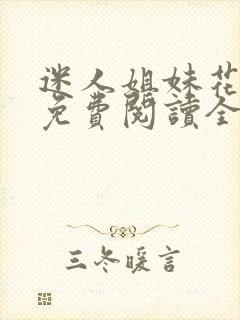 迷人姐妹花
免費閱讀全
三冬暖言